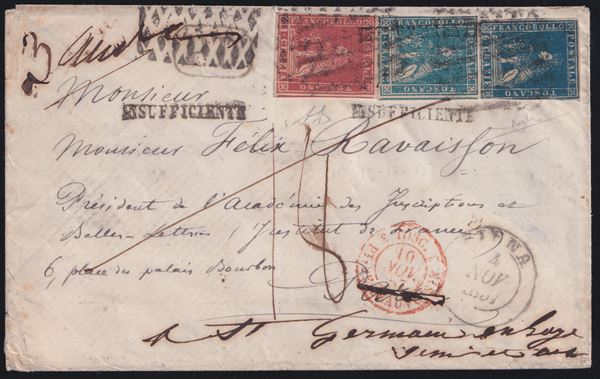 FRANCOBOLLO POSTALE TOSCANO
FRANCOBOLLO POSTALE TOSCANO
FRANCOBOLLO POSTALE TOSCANO
Monsieur
INSUFFICIENTE
INSUFFICIENTE
Monsieur Félix Ravaisson
Président de l'Académie des Inscriptions et
Belles-Lettres, Institut de France
6, place du palais Bourbon
SIENA
4
NOV
1851
10
NOV
TOSC.
à St Germain en Laye
Seine et Oise